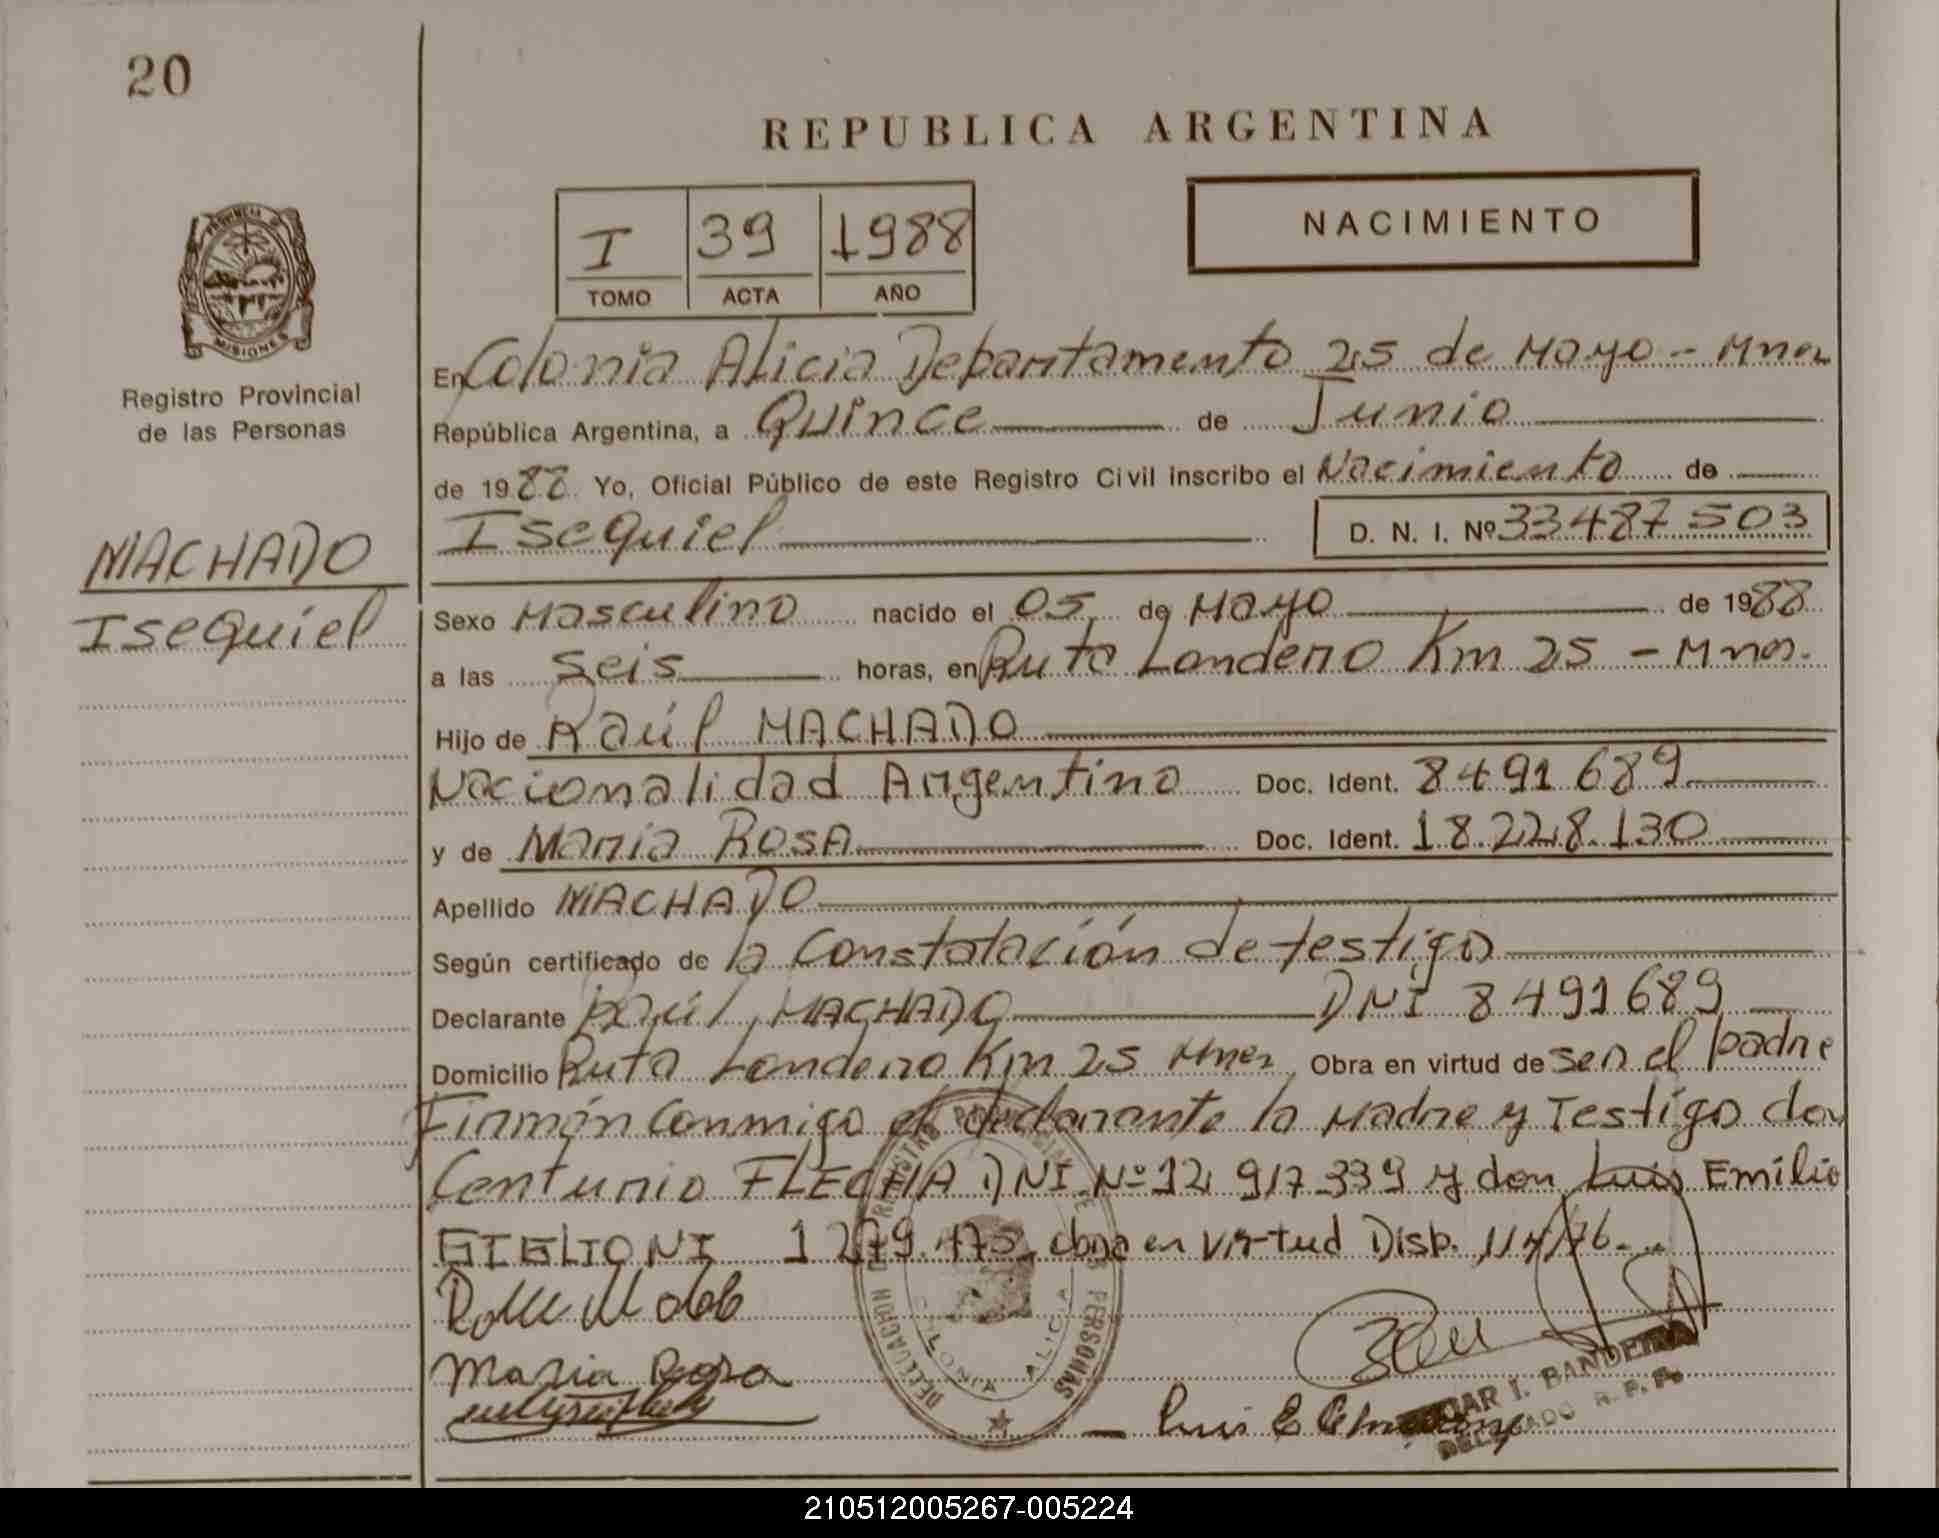 20
REPUBLICA ARGENTINA
I 39 1988
TOMO ACTA AÑO
NACIMIENTO
PROVINCIA DE
MISIONES
Registro Provincial
de las Personas
MACHADO
Isequiel
En Colonia Alicia Departamento 25 de Mayo - Mnes
República Argentina, a Quince de Junio
de 1988 Yo, Oficial Público de este Registro Civil inscribo el Nacimiento de
Isequiel D. N. I. Nº 33487503
Sexo Masculino nacido el 05 de Mayo de 1988
a las Seis horas, en Ruta Londero Km 25 - Mnes.
Hijo de Raúl MACHADO
Nacionalidad Argentino Doc. Ident. 8491689
y de Maria ROSA Doc. Ident. 18.228.130
Apellido MACHADO
Según certificado de la Constatación de testigo
Declarante Raúl MACHADO DNI 8491689
Domicilio Ruta Londero Km 25 Mnes Obra en virtud de ser el padre
Firmán Conmigo el declarante la Madre y Testigo don
Centurio FLECHA DNI Nº 12 917339 y don Luis Emilio
GIGLIONI obra en virtud Disp.
Maria Rosa
Luis E
REGISTRO PERSONAS
COLONIA ALICIA
I. BANDEIRA
DELEGADO R. P. P.
210512005267-005224